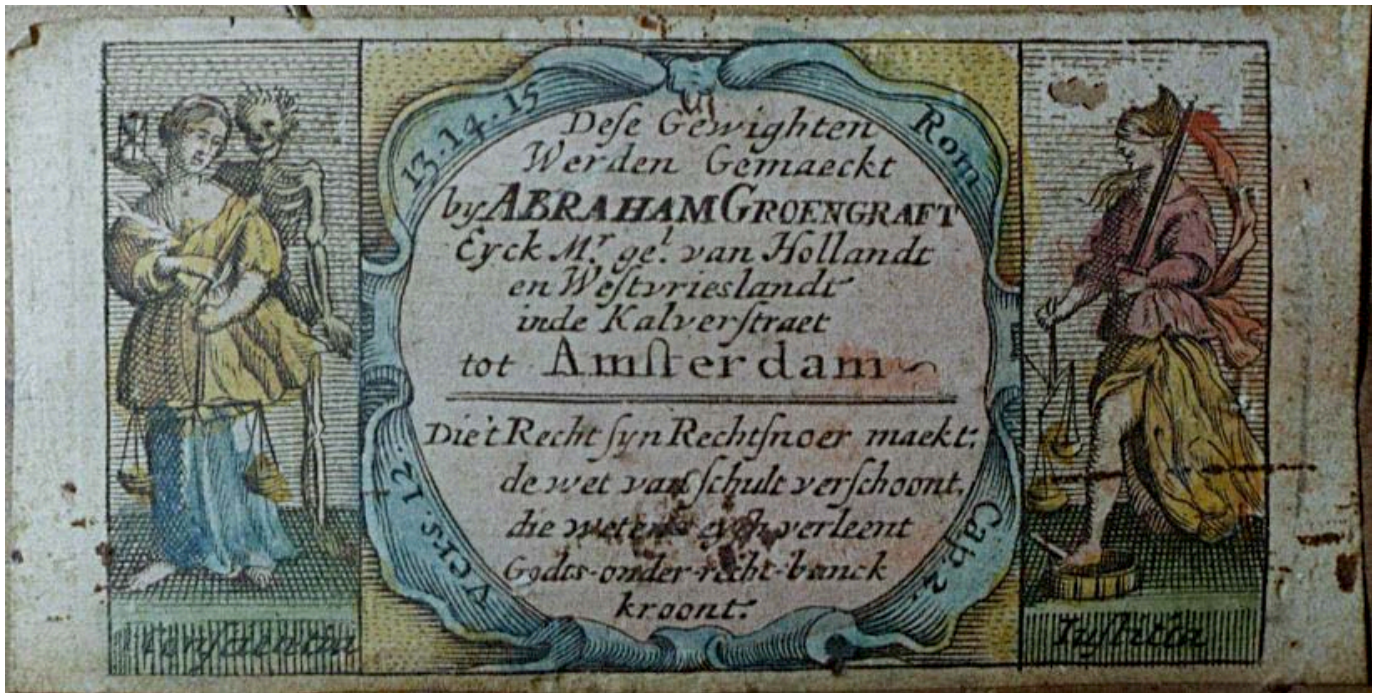 13.14.15
Rom
Deſe Gewighten
Werden Gemaeckt
by ABRAHAM GROENGRAFT
Eyck Mʳ. geˡ. van Hollandt
en Weſtvrieslandt
inde Kalverſtraet
tot Amſterdam
Die't Recht ſyn Rechtſnoer maekt:
de wet van ſchult verſchoont,
die verleent
Godts-onder-recht-banck
kroont:
Vers. 12.
Cap. 2.
Iuſtitia